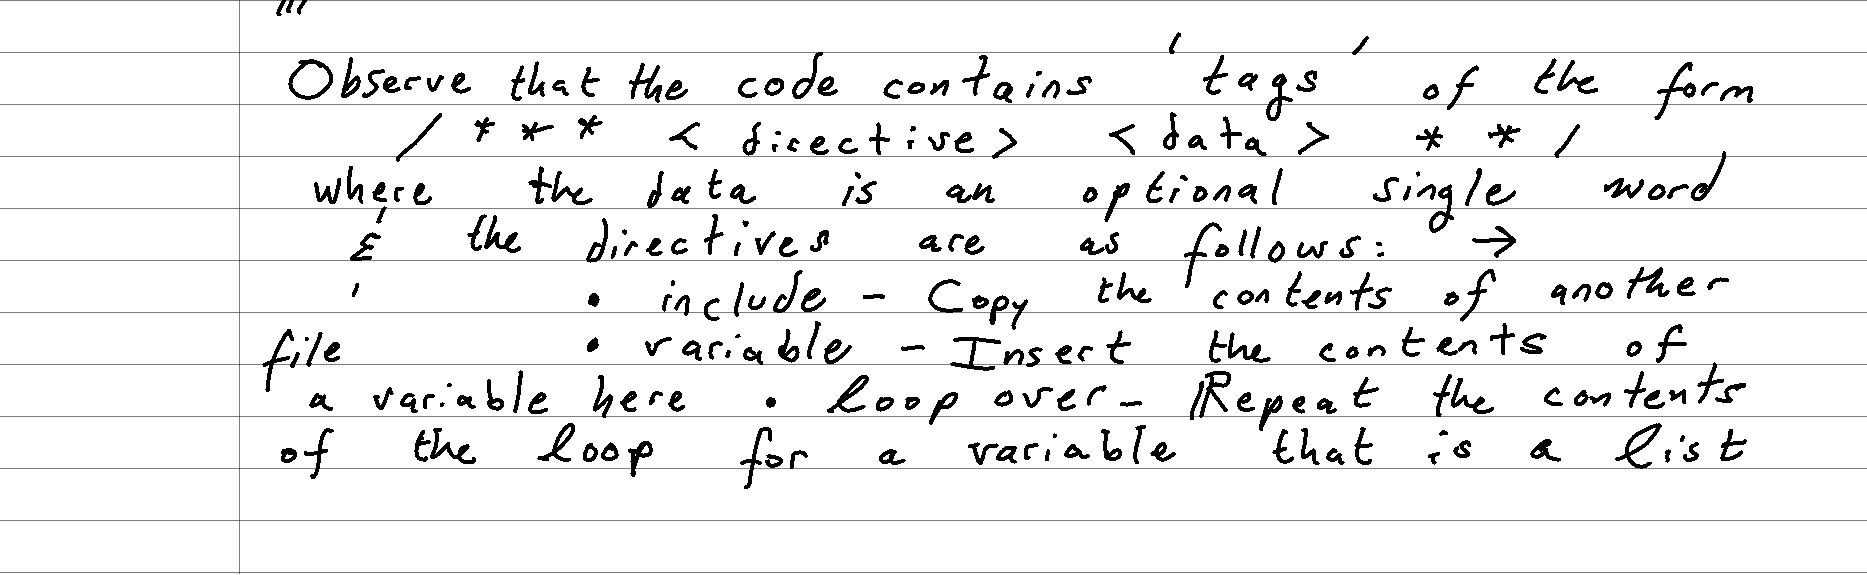 Observe that the code contains 'tags' of the form
/*** <directive> <data> **/
where the data is an optional single word
& the directives are as follows: →
• include - Copy the contents of another
file • variable - Insert the contents of
a variable here • loop over - Repeat the contents
of the loop for a variable that is a list